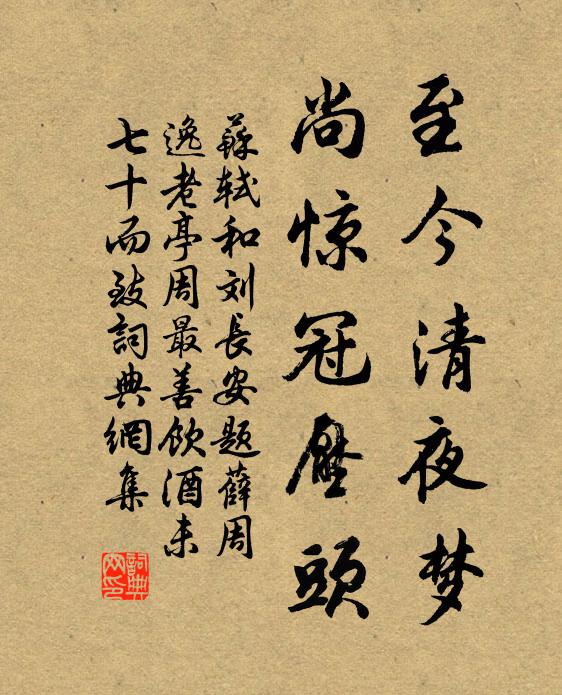 至今清夜梦
尚惊冠壓頭
蘇轼和刘長安题薛周
逸老亭周最善饮酒未
七十而致詞典網集
詞典
网印